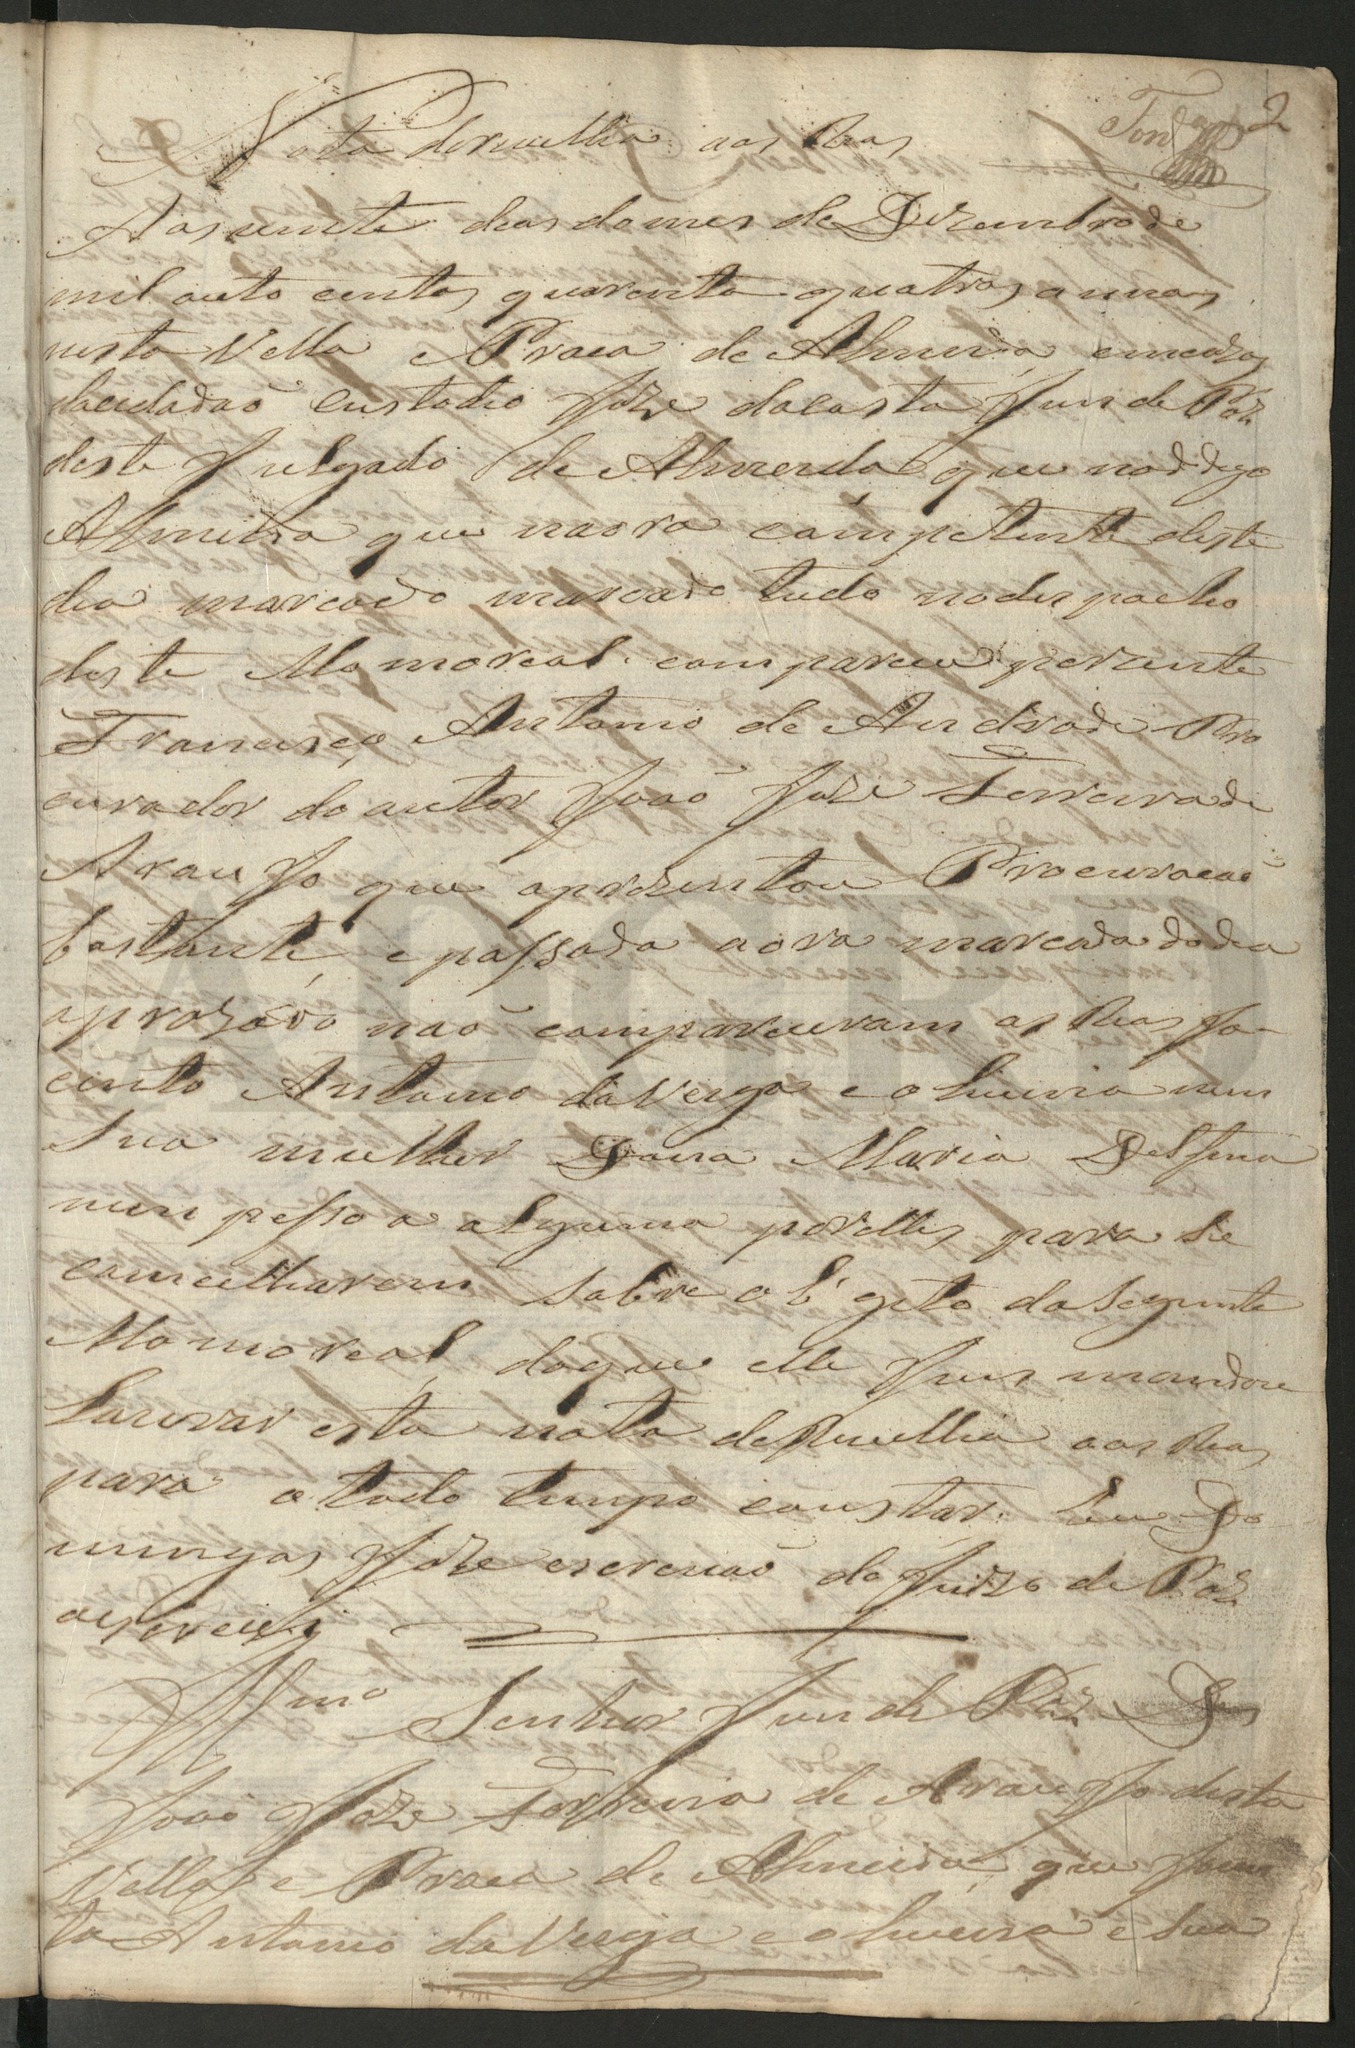 2
Nota derevellia aos Reos
Aos vinte dias do mes de Dizembro de
mil outo centos quarenta quatro, annos
nesta Vella e Praca de Almeida, em cazas
docidadaõ Custodio Joze dacosta Juis de Paz
deste Julgado de Almeida que nod digo
Almeida que naora competente deste
dia marcado marcado tudo nodespacho
deste Momoreal compareceu perante
Francisco Antonio de Andrade Pro
curador do autor Joaõ Joze Ferreira de
Araujo que aprezentou Procuracaõ
bastante, e passada aora marcada dodia
aprozado naõ compareceram os Reos Ja-
cinto Antonio da Veiga e oliveira nem
Sua mulher Dona Maria Delfina
nem pessoa alguma porelles para se
concelharem sobre o obgeto da seguinte
Momoreal, doque elle Juis mandou
Lavrar esta nota deRevellia aos Reos
para a todo tempo constar. Eu Do
mingos Joze escrevaõ do Juizo de Paz
oescrevi
Illmo Senhor Juis de Paz
Joaõ Joze Ferreira de Araujo desta
Vella e Praca de Almeida, que Jacin
to Antonio da Veiga e oliveira e sua
ADGRD